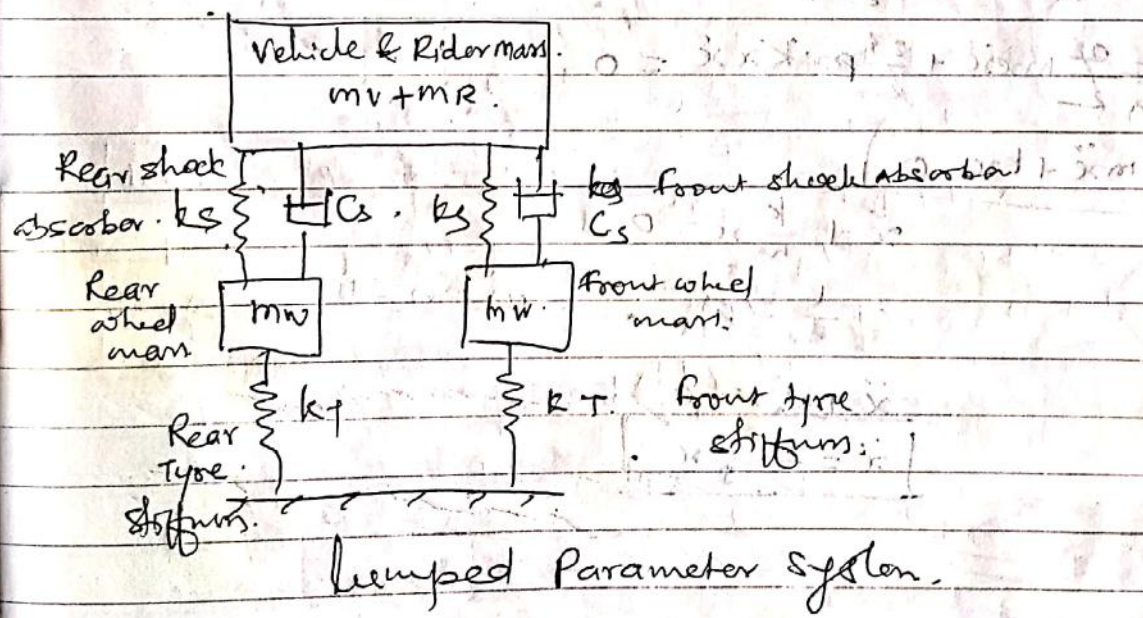 Vehicle & Rider mass.
mv + mR.
Rear shock
absorber. ks
Cs.
ks
front shock absorber
Cs
Rear
wheel
mass
mw
mw.
front wheel
mass.
kT
kT.
front tyre
stiffness.
Rear
Tyre.
stiffness.
Lumped Parameter System.